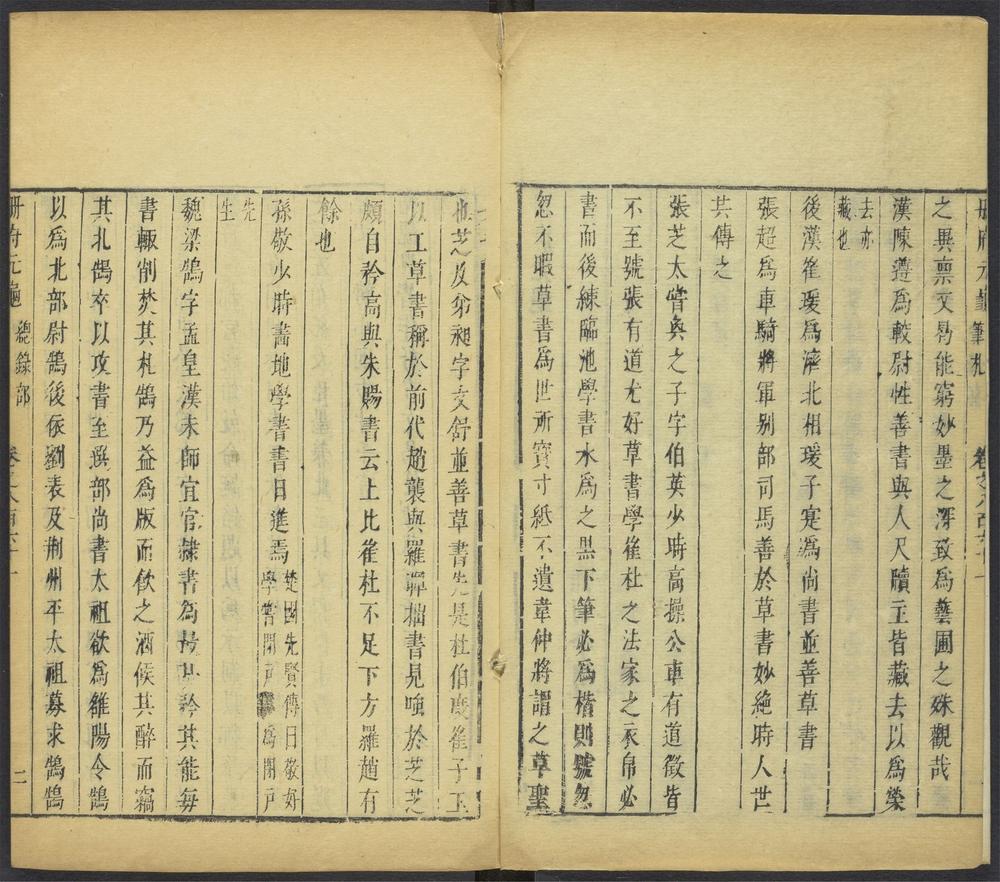 冊府元龜筆札 卷之八百六十一
之異稟文昜能窮妙墨之深致爲藝圃之殊觀哉
漢陳遵爲較尉性善書與人尺牘主皆藏去以爲榮
去亦
藏也
後漢崔瑗爲濟北相瑗子寔爲尚書並善草書
張超爲車騎將軍别部司馬善於草書妙絶時人世
共傳之
張芝太常奐之子字伯英少時高操公車有道徵皆
不至號張有道尤好草書學崔杜之法家之衣帛必
書而後練臨池學書水爲之黒下筆必爲楷則號忽
忽不暇草書爲世所寳寸紙不遺韋仲將謂之草聖
也芝及弟昶字文舒並善草書先是杜伯度崔子玉
以工草書稱於前代趙襲與羅暉拙書見嗤於芝芝
頗自矜高與朱賜書云上比崔杜不足下方羅趙有
餘也
孫敬少時畵地學書書日進焉
楚國先賢傳曰敬好
學嘗閉戸 爲閉戸
先
生
魏梁鵠字孟皇漢末師宜官隷書爲最 矜其能每
書輙削焚其札鵠乃益爲版而飲之酒候其醉而竊
其北鵠卒以攻書至選部尚書太祖欲爲雒陽令鵠
以爲北部尉鵠後依劉表及荆州平太祖募求鵠鵠
冊府元龜 緫錄部 卷之八百六十一 二